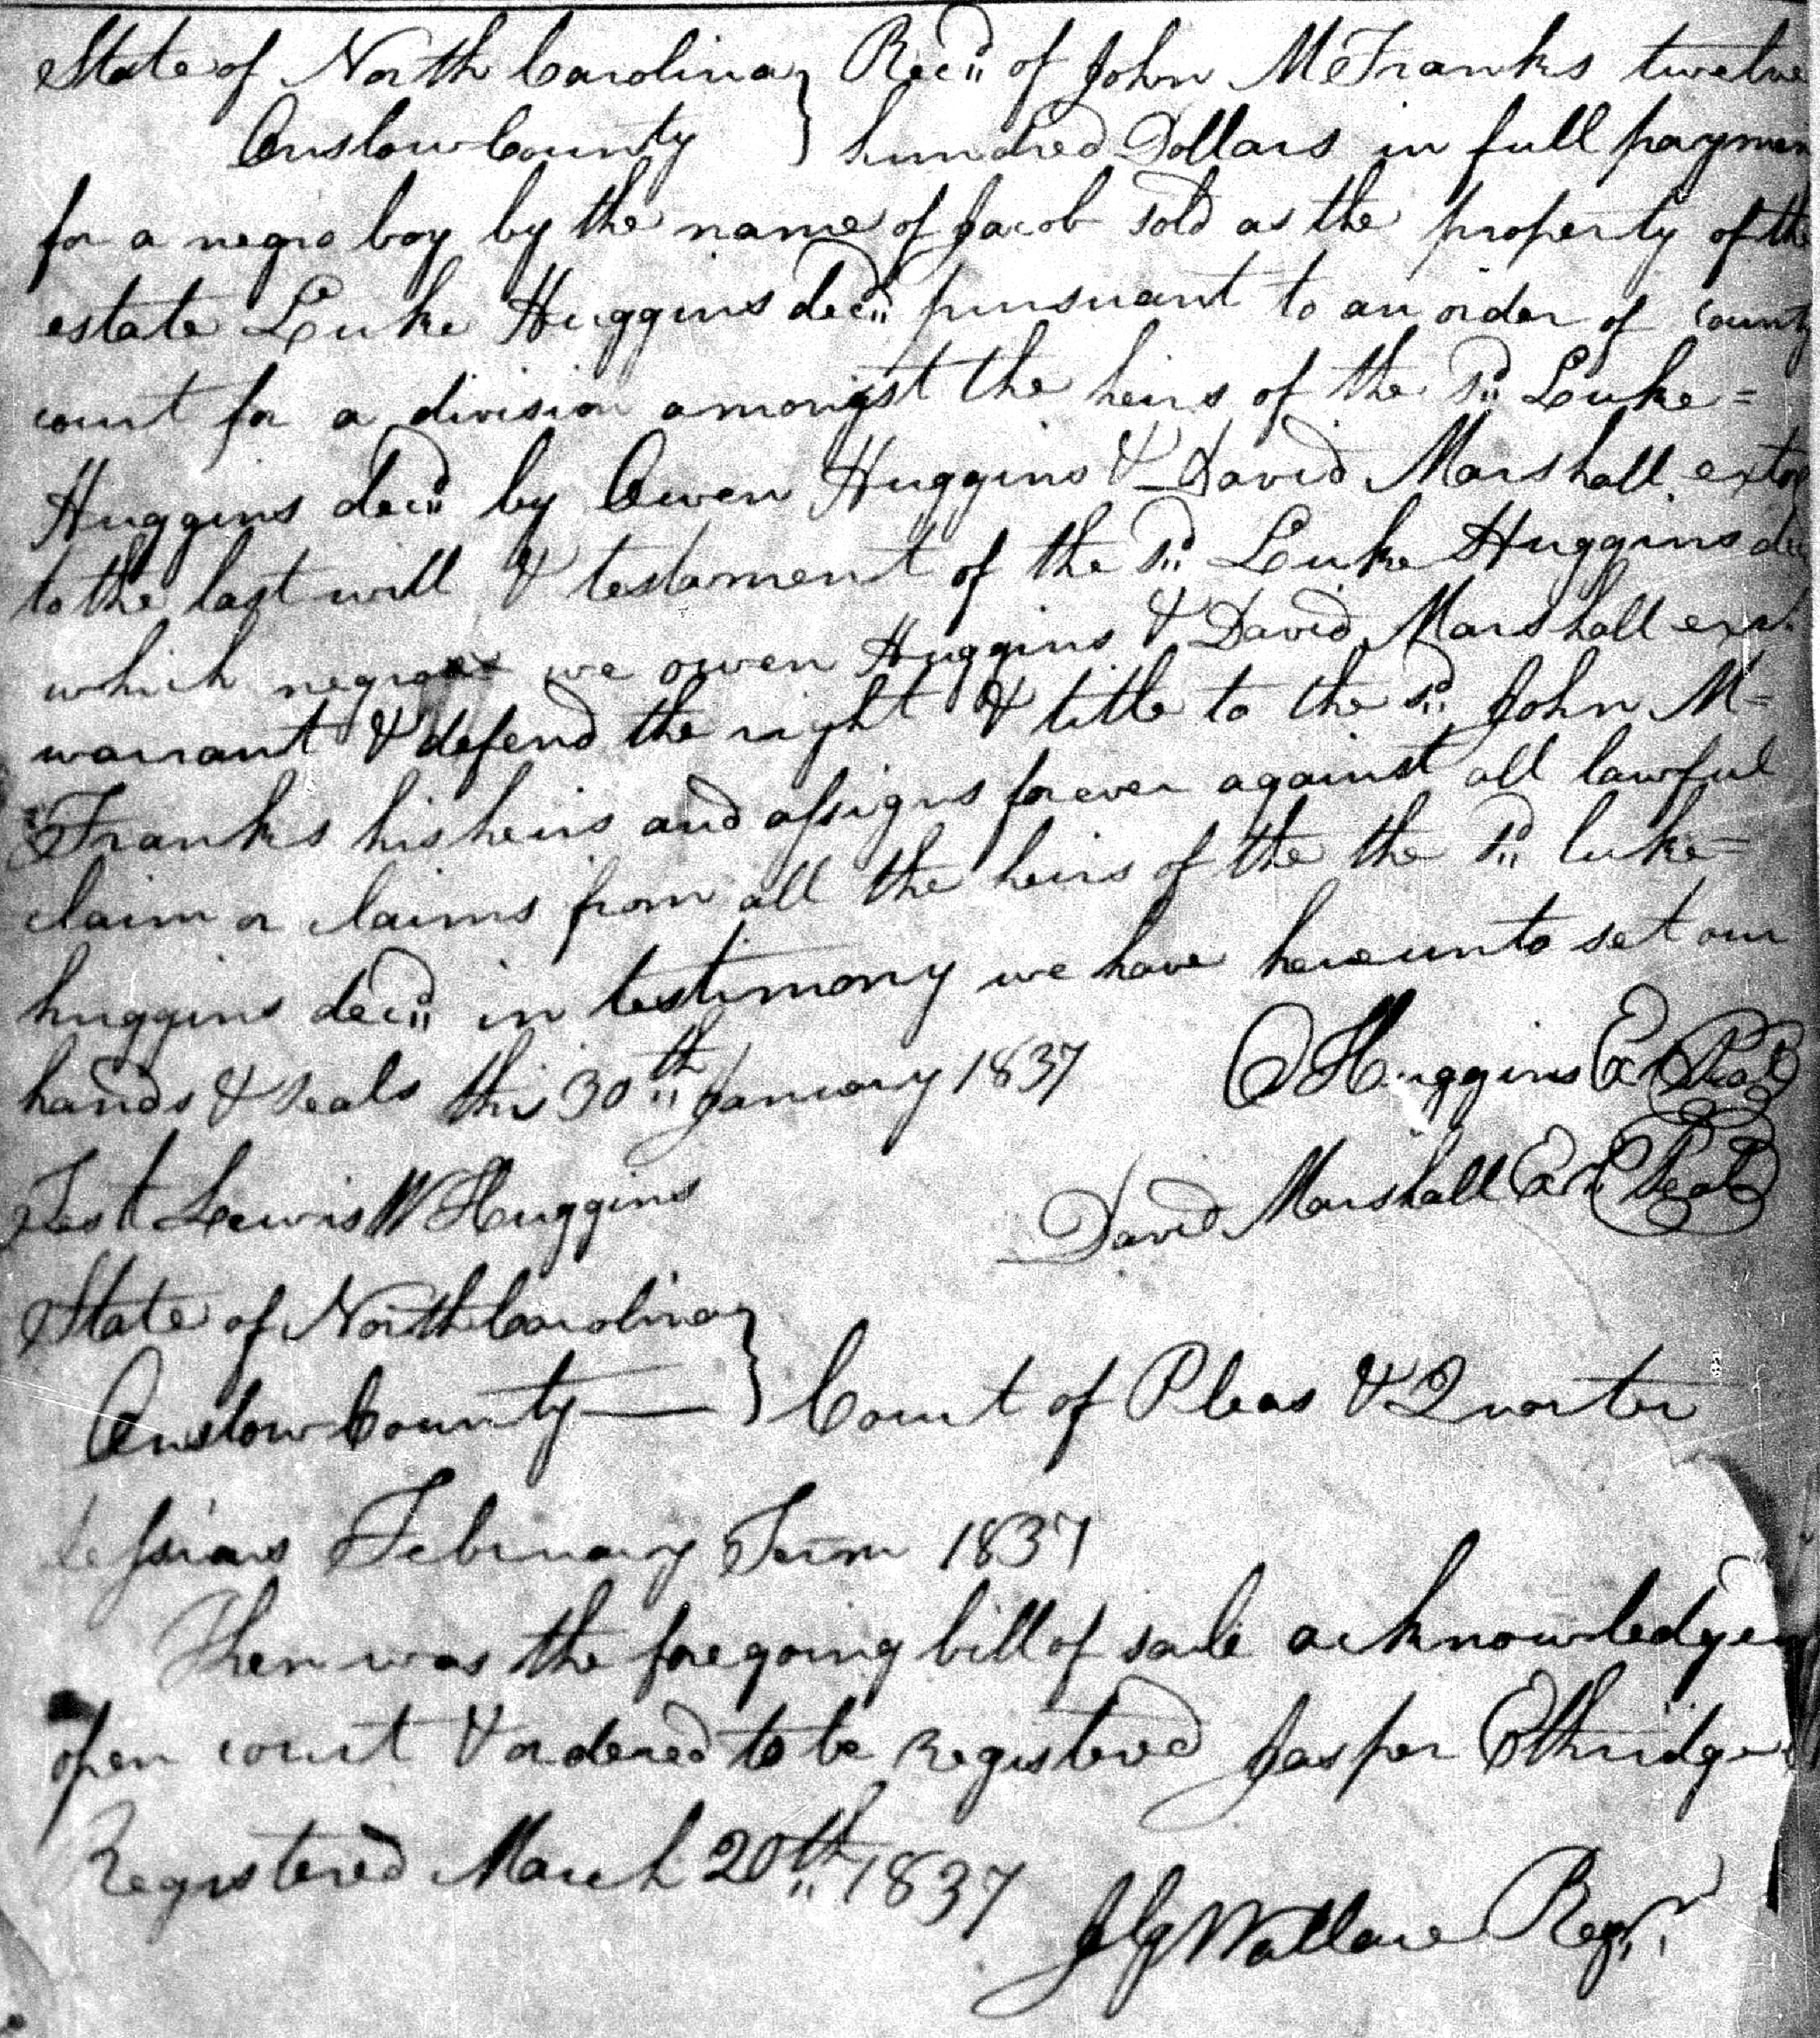 State of North Carolina } Recd of John M Franks twelve
Onslow County } hundred Dollars in full paymen
for a negro boy by the name of Jacob sold as the property of the
estate Luke Huggins decd pursuant to an order of County
court for a division amongst the heirs of the sd Luke =
Huggins decd by Owen Huggins & David Marshall extor
to the last will & testament of the sd Luke Huggins dec
which negro we owen Huggins & David Marshall
warrant & defend the right & title to the sd John M =
Franks his heirs and assigns forever against all lawful
claim or claims from all the heirs of the the sd luke =
huggins decd in testimony we have hereunto set our
hands & seals this 30th January 1837 O Huggins Ex Seal
Test Lewis W Huggins David Marshall Ex Seal
State of North Carolina }
Onslow County — } Court of Pleas & Quarter
Sessions February Term 1837
Then was the foregoing bill of sale acknowledged
open court & ordered to be Registered Jasper Ethridge
Registered March 20th 1837
J G Wallace Regr